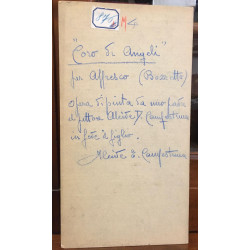 M4
"Coro di Angeli"
per Affresco (Bozzetto)
opera dipinta da mio padre
pittore Alcide D. Campestrini
in fede il figlio.
Alcide D. Campestrini